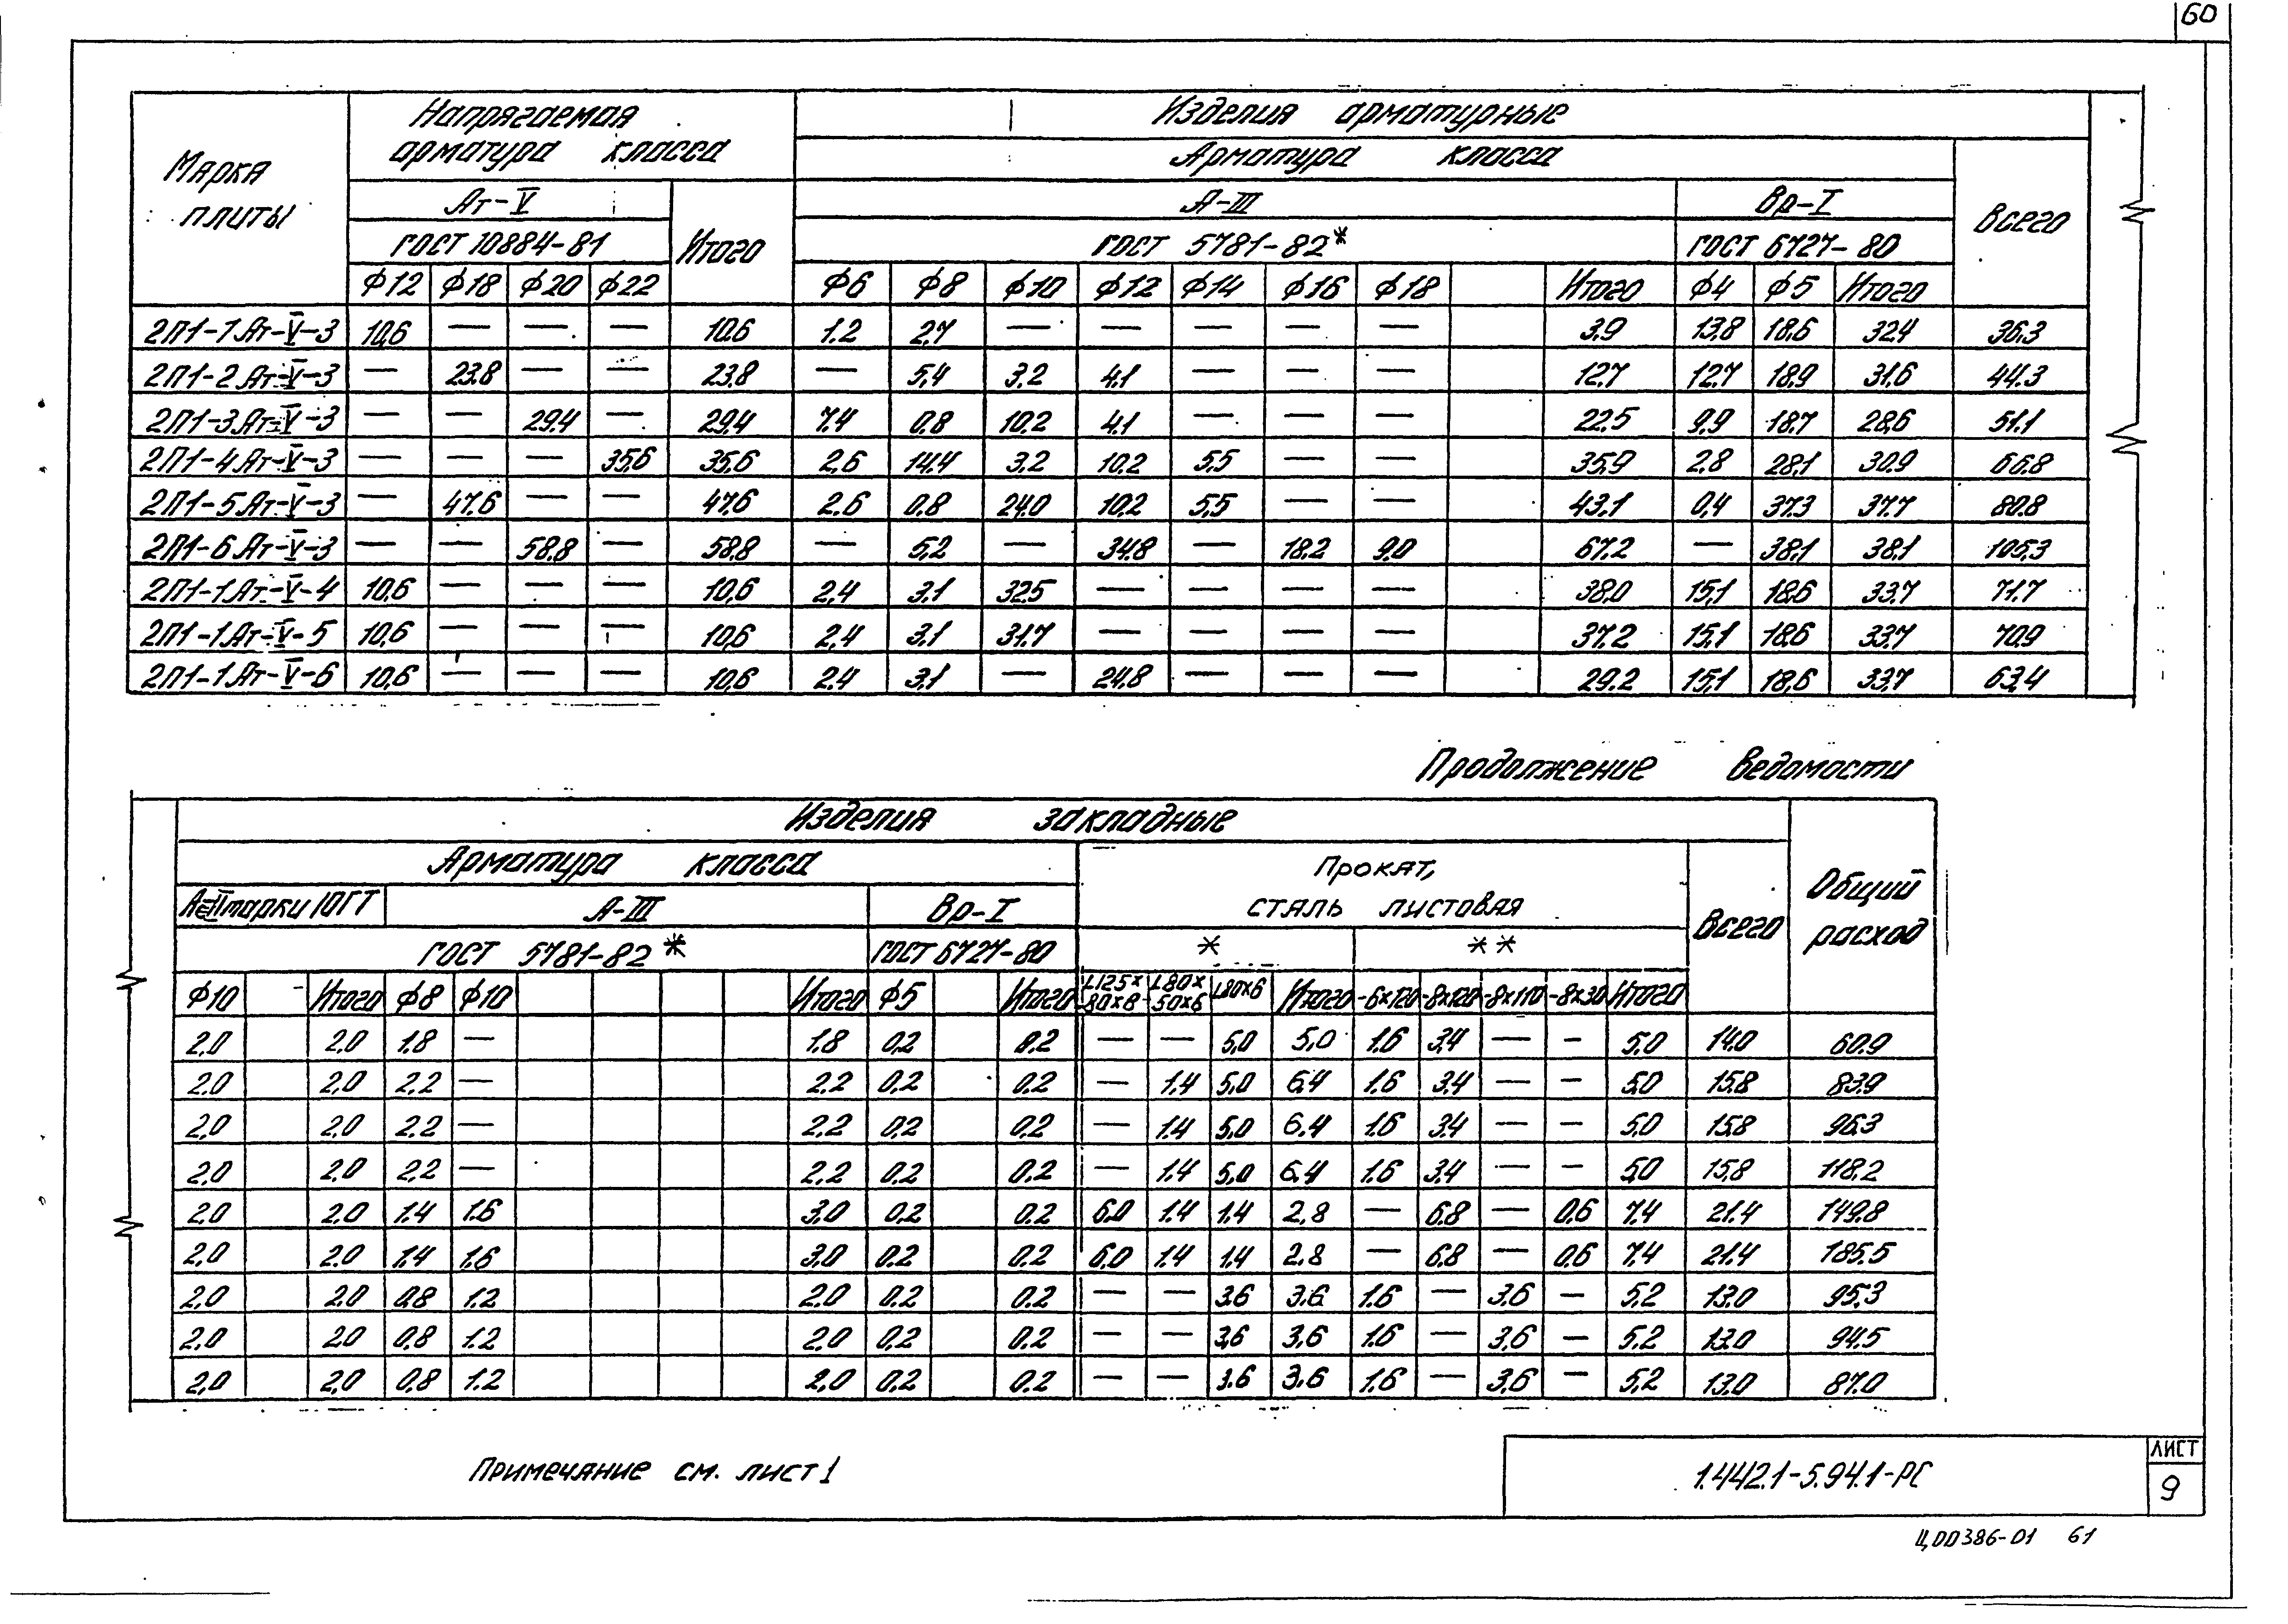 60
Марка плиты
Напрягаемая арматура класса
Изделия арматурные
Арматура класса
Всего
Ат-V
Итого
А-III
Вр-I
ГОСТ 10884-81
ГОСТ 5781-82*
ГОСТ 6727-80
ф12 ф18 ф20 ф22 ф6 ф8 ф10 ф12 ф14 ф16 ф18 Итого ф4 ф5 Итого
2П1-1Ат-V-3 10,6 — — — 10,6 1.2 2.7 — — — — — 3.9 13.8 18.6 32.4 36.3
2П1-2Ат-V-3 — 23.8 — — 23.8 — 5,4 3.2 4.1 — — — 12.7 12.7 18.9 31.6 44.3
2П1-3Ат-V-3 — — 29.4 — 29.4 7.4 0.8 10.2 4.1 — — — 22.5 9.9 18.7 28.6 51.1
2П1-4Ат-V-3 — — — 35,6 35,6 2.6 14.4 3.2 10.2 5.5 — — 35.9 2.8 28.1 30.9 66.8
2П1-5Ат-V-3 — 47.6 — — 47.6 2.6 0.8 24.0 10.2 5,5 — — 43.1 0,4 37.3 37.7 80.8
2П1-6Ат-V-3 — — 58,8 — 58,8 — 5,2 — 34.8 — 18.2 9.0 67.2 — 38.1 38.1 105,3
2П1-1Ат-V-4 10,6 — — — 10,6 2,4 3.1 32.5 — — — — 38.0 15,1 18.6 33.7 71.7
2П1-1Ат-V-5 10,6 — — — 10,6 2,4 3.1 31.7 — — — — 37.2 15.1 18,6 33.7 70.9
2П1-1Ат-V-6 10,6 — — — 10,6 2.4 3.1 — 24.8 — — — 29.2 15,1 18,6 33.7 63,4
Продолжение ведомости
Изделия закладные
Общий расход
Арматура класса
Прокат, сталь листовая
Всего
марки 10ГТ
А-III
Вр-I
ГОСТ 5781-82*
ГОСТ 6727-80
*
**
ф10 Итого ф8 ф10 Итого ф5 Итого L125×80×8 L80×50×6 L80×6 Итого -6×120 -8×120 -8×110 -8×30 Итого
2,0 2,0 1.8 — 1.8 0.2 0.2 — — 5,0 5,0 1.6 3,4 — — 5.0 14.0 60.9
2.0 2,0 2,2 — 2.2 0.2 0.2 — 1.4 5.0 6.4 1.6 3,4 — — 5,0 15.8 83.9
2,0 2.0 2.2 — 2,2 0,2 0.2 — 1.4 5.0 6.4 1.6 3.4 — — 5,0 15.8 96.3
2,0 2.0 2,2 — 2,2 0.2 0.2 — 1.4 5.0 6.4 1.6 3.4 — — 5,0 15,8 118,2
2.0 2.0 1.4 1.6 3,0 0.2 0.2 6.0 1.4 1.4 2.8 — 6.8 — 0.6 7.4 21.4 149.8
2,0 2.0 1.4 1.6 3,0 0.2 0.2 6,0 1.4 1.4 2.8 — 6.8 — 0.6 7.4 21.4 185.5
2.0 2.0 0.8 1.2 2.0 0.2 0.2 — — 3.6 3.6 1.6 — 3.6 — 5,2 13.0 95,3
2.0 2.0 0.8 1.2 2,0 0,2 0.2 — — 3,6 3,6 1.6 — 3,6 — 5.2 13.0 94,5
2,0 2,0 0,8 1.2 2,0 0.2 0.2 — — 3.6 3,6 1.6 — 3,6 — 5,2 13.0 87.0
Примечание см. лист 1
1.442.1-5.94.1-РС
ЛИСТ
9
Ц00386-01 61